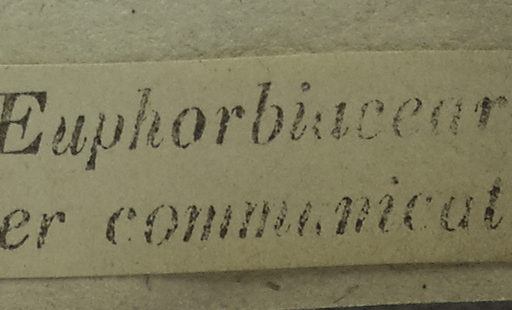 Euphorbiacear
er communicat